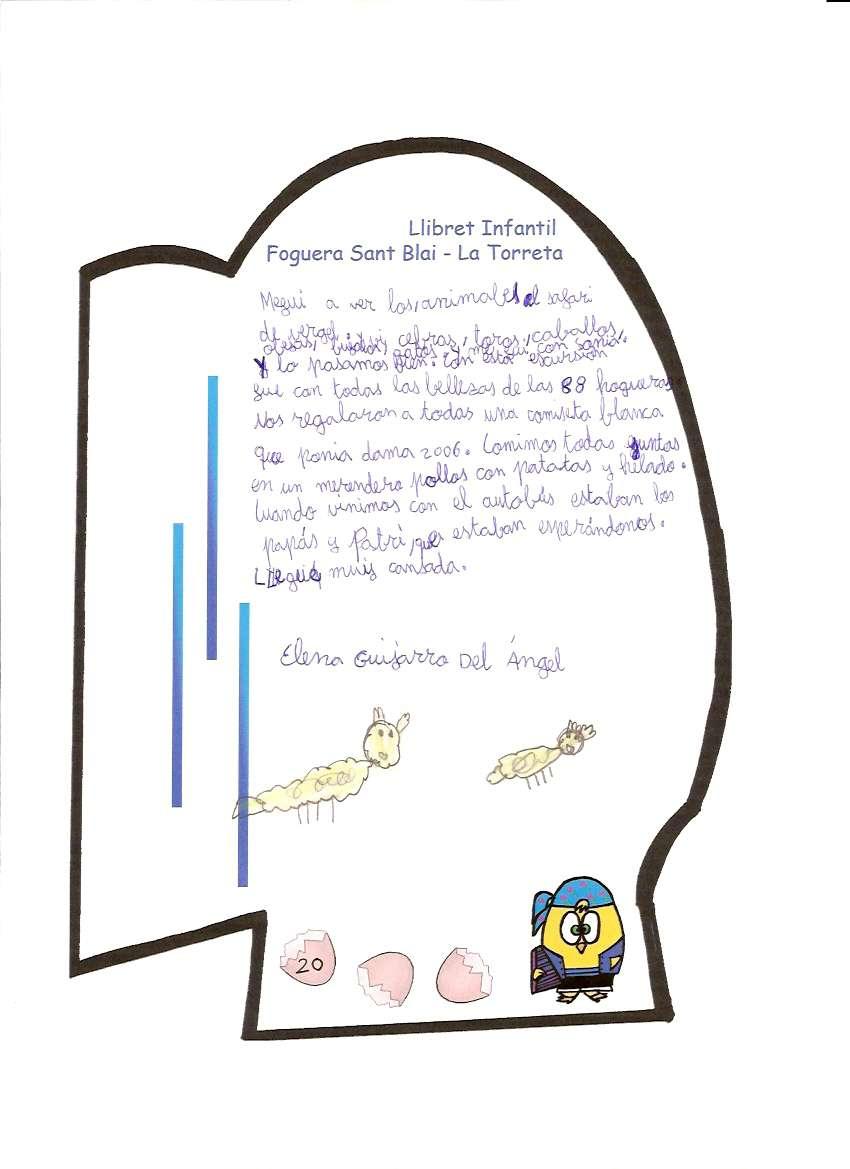 Llibret Infantil
Foguera Sant Blai - La Torreta
Megui a ver los animales al safari
de vergel. y vi cebras, toros, caballos,
obejas, gatos y me gui con Sonia.
y lo pasamos bien. con esta escursion
gue con todas las bellezas de las 88 hogueras.
Nos regalaron a todas una camiseta blanca
que ponia dama 2006. Comimos todas guntas
en un merendero pollos con patatas y helado.
Cuando vinimos con el autobús estaban los
papás y Patri que estaban esperándonos.
Llegué muis cansada.
Elena Guijarro Del Ángel
20